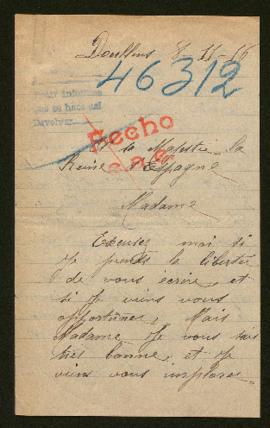 Doullens 8-11-16
46312
Fecho
A sa Majesté la
Reine d'Espagne
Madame
Excusez moi si
je prends la liberté
de vous écrire, et
si je viens vous
Mais
Madame Je vous sais
très bonne, et je
viens vous implorer